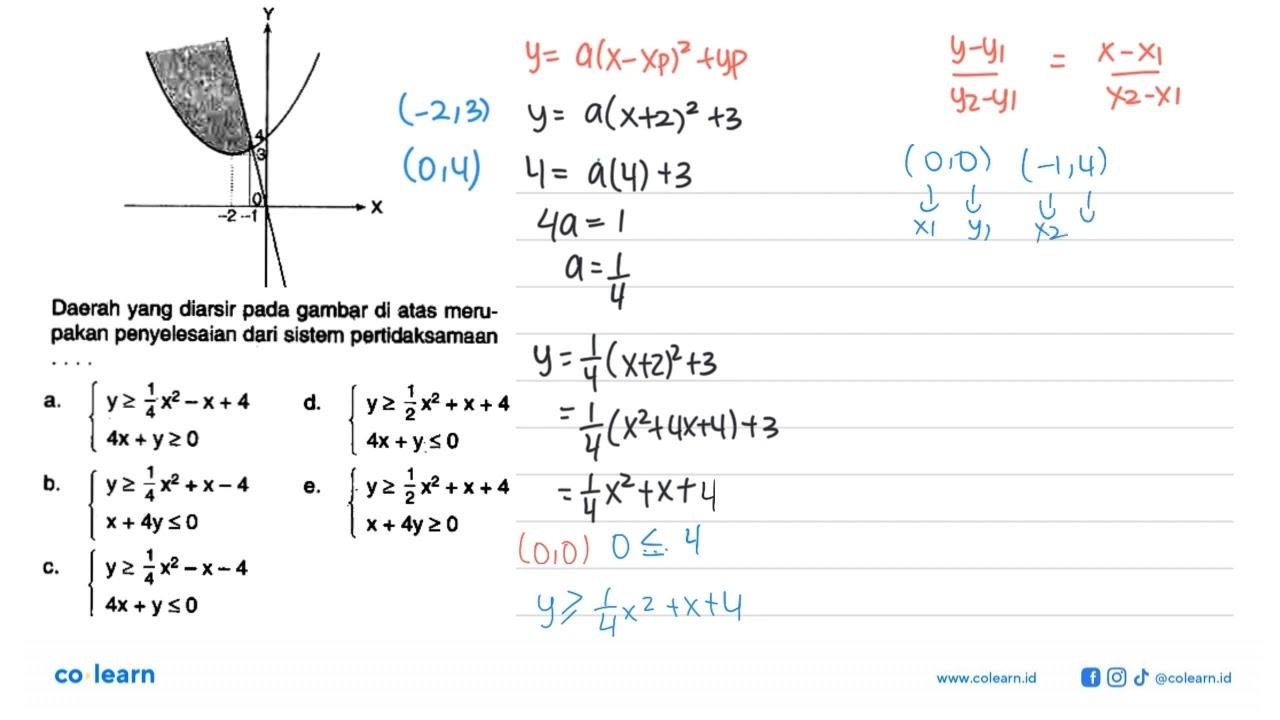 Y
4
3
0
X
-2 -1
Daerah yang diarsir pada gambar di atas meru-
pakan penyelesaian dari sistem pertidaksamaan
....
a. { y ≥ 1/4 x² - x + 4
4x + y ≥ 0
b. { y ≥ 1/4 x² + x - 4
x + 4y ≤ 0
c. { y ≥ 1/4 x² - x - 4
4x + y ≤ 0
d. { y ≥ 1/2 x² + x + 4
4x + y ≤ 0
e. { y ≥ 1/2 x² + x + 4
x + 4y ≥ 0
(-2,3)
(0,4)
y = a(x-xp)² + yp
y = a(x+2)² + 3
4 = a(4) + 3
4a = 1
a = 1/4
y = 1/4 (x+2)² + 3
= 1/4 (x²+4x+4) + 3
= 1/4 x² + x + 4
(0,0) 0 ≤ 4
y ≥ 1/4 x² + x + 4
y-y1 / y2-y1 = x-x1 / x2-x1
(0,0) (-1,4)
↓ ↓ ↓ ↓
x1 y1 x2
co learn
www.colearn.id
@colearn.id